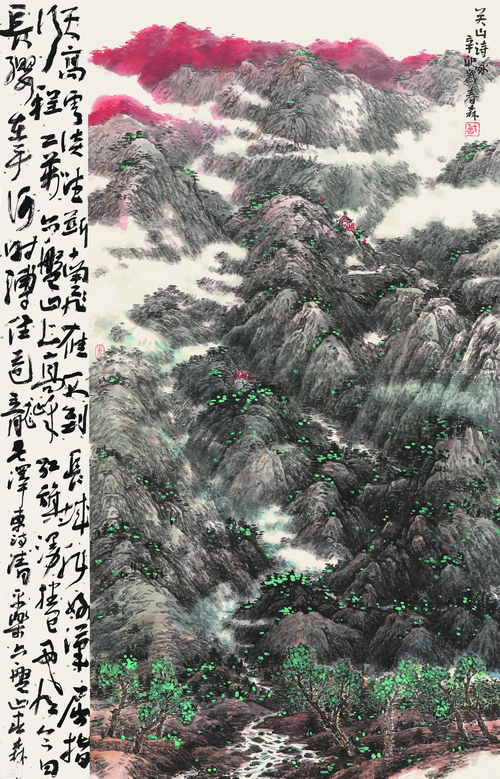 关山诗
辛卯歲春森
天高雲淡望断南飛雁不到長城非好漢屈指
行程二萬六盤山上高峰紅旗漫捲西風今日
長纓在手何時縛住蒼龍毛澤東詩清平樂六盤山春森